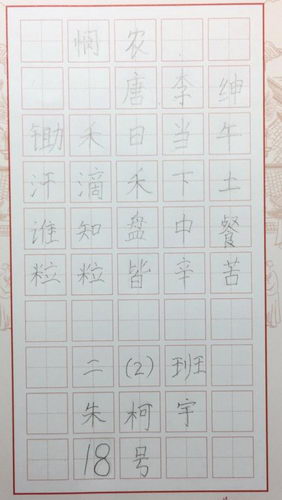 悯农
唐 李绅
锄禾日当午
汗滴禾下土
谁知盘中餐
粒粒皆辛苦
二(2)班
朱柯宇
18号